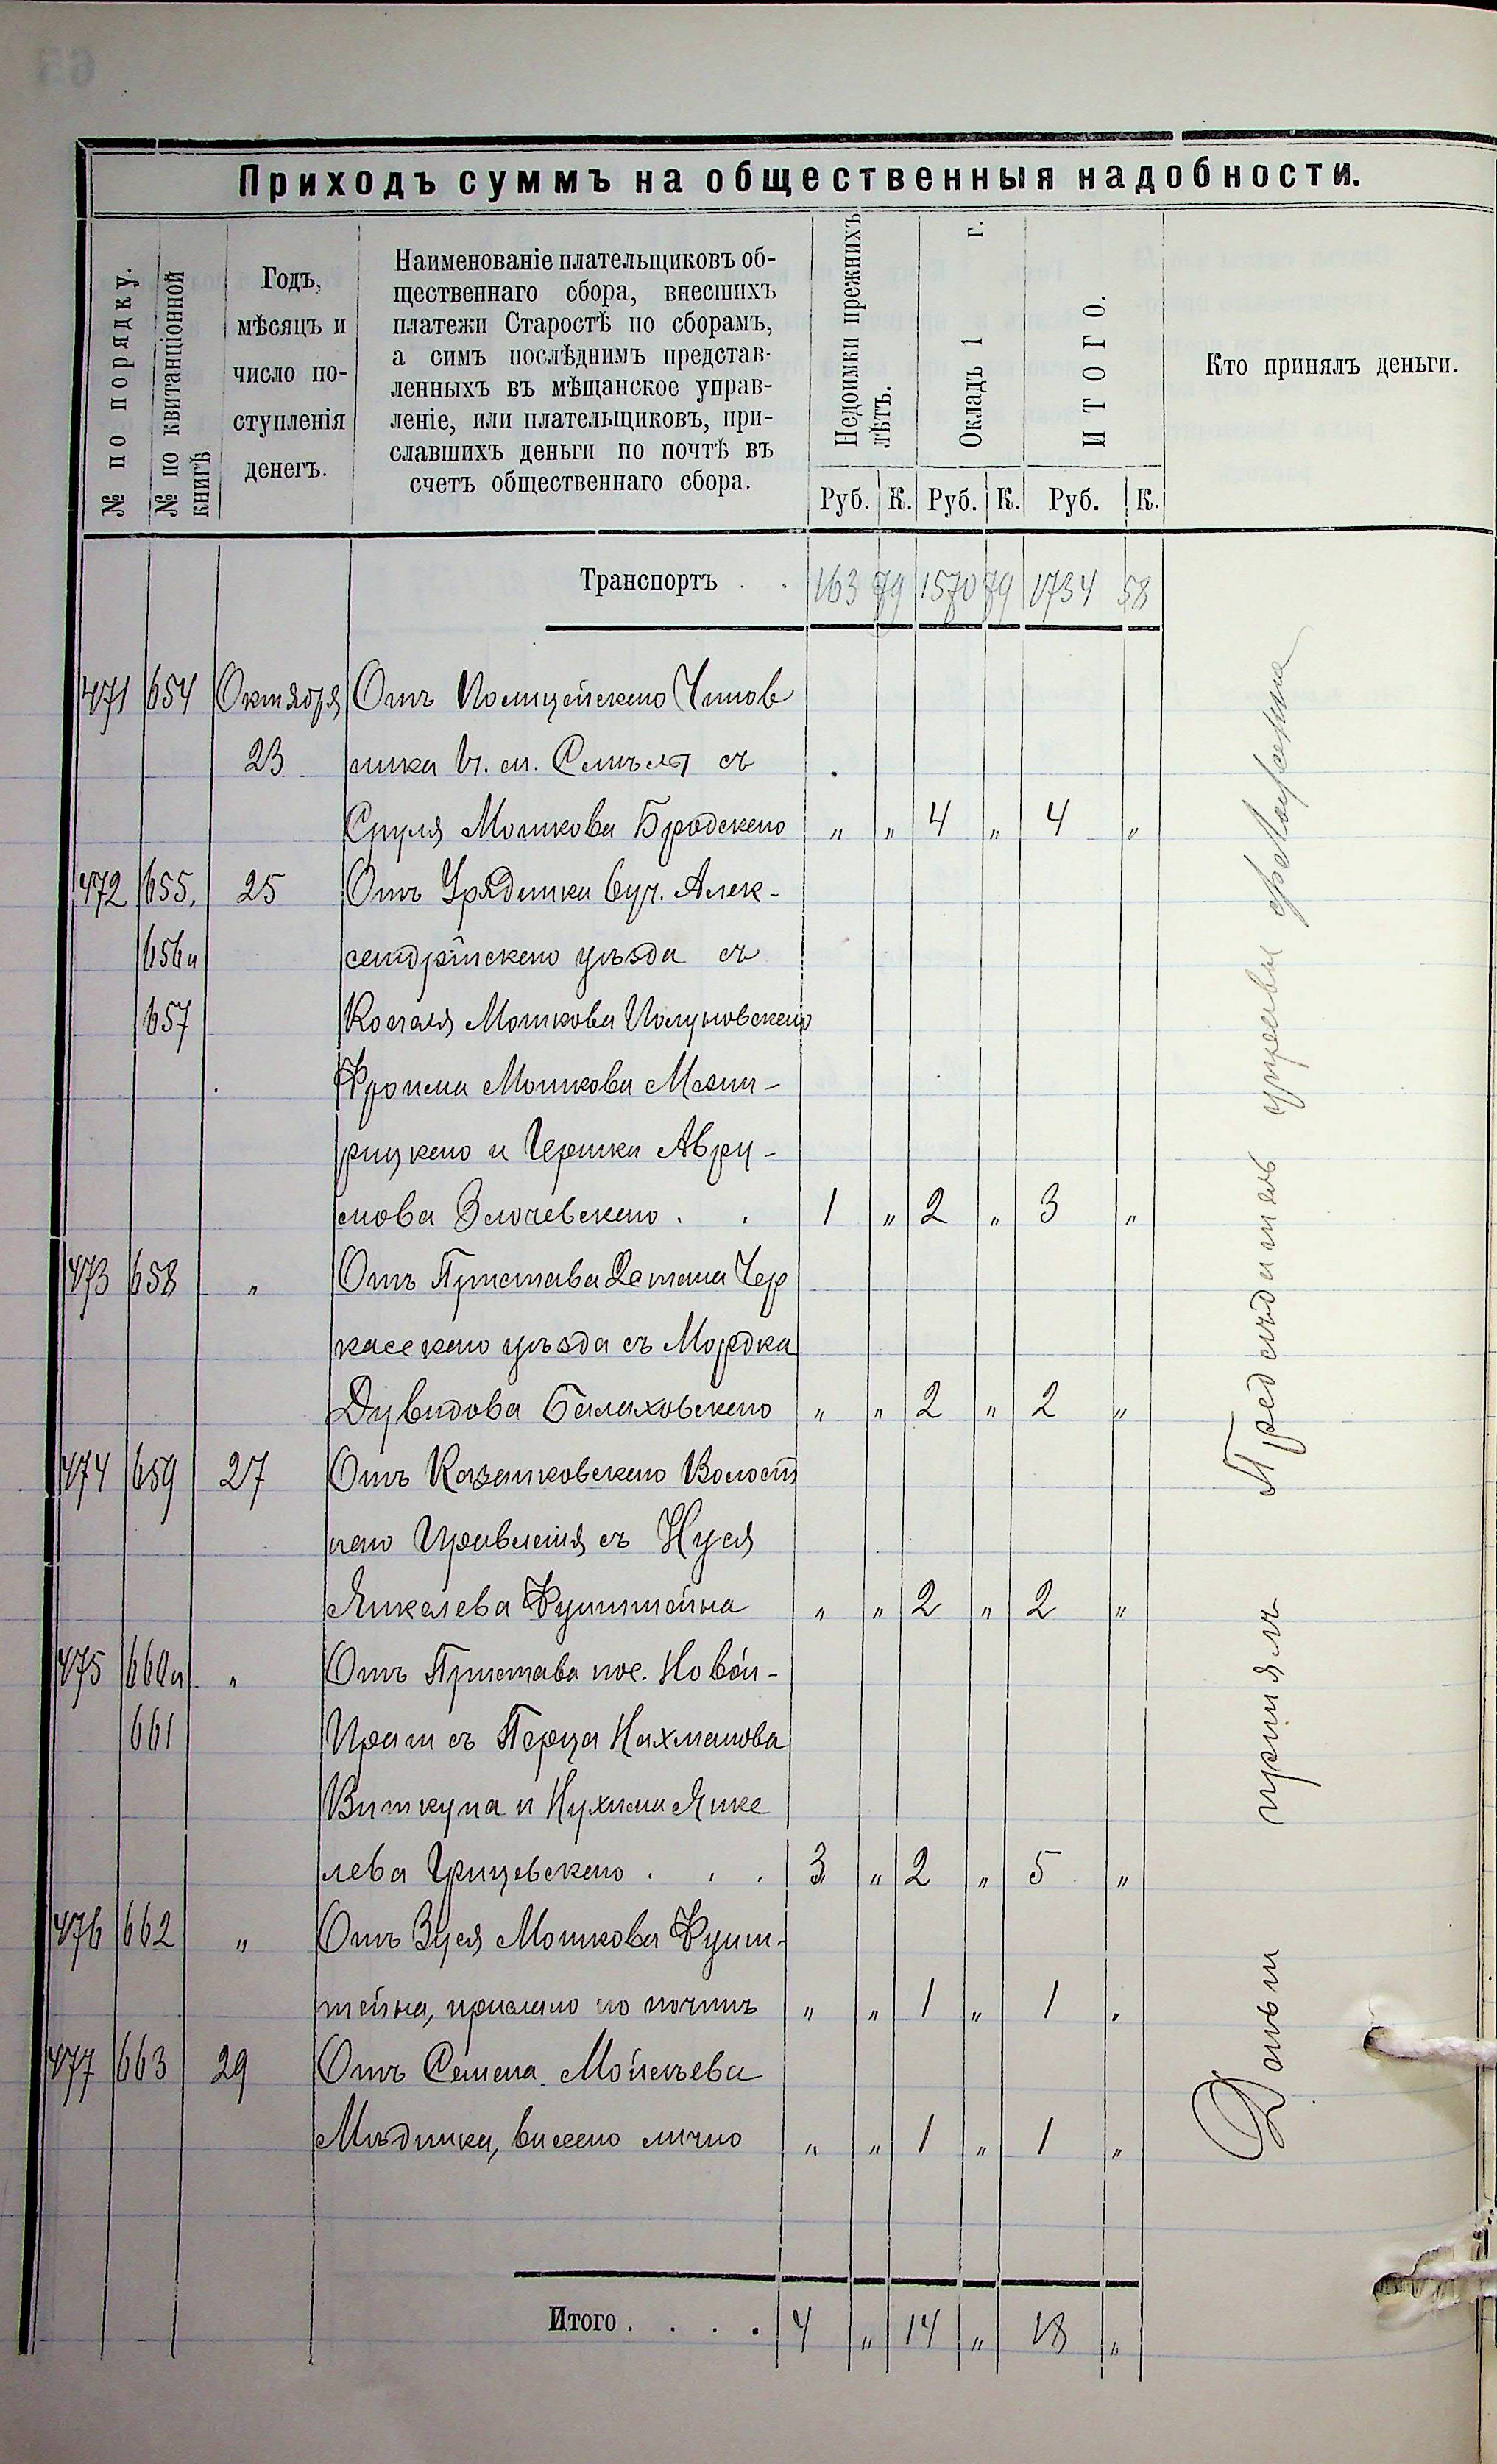 Приходъ суммъ на общественныя надобности.
№ по порядку.
№ по квитанціонной книгѣ
Годъ, мѣсяцъ и число поступленія денегъ.
Наименованіе плательщиковъ об-
щественнаго сбора, внесшихъ
платежи Старостѣ по сборамъ,
а симъ послѣднимъ представ-
ленныхъ въ мѣщанское управ-
леніе, или плательщиковъ, при-
славшихъ деньги по почтѣ въ
счетъ общественнаго сбора.
Недоимки прежнихъ лѣтъ.
Окладъ 1 г.
ИТОГО.
Кто принялъ деньги.
Руб. К. Руб. К. Руб. К.
Транспортъ . . 163 79 1570 79 1734 58
471 654 Октября Отъ Полицейскаго Чинов
23 ника въ м. Смѣла съ
Сруля Мошкова Бродскаго " " 4 " 4 "
472 655, 25 Отъ Урядника 6 уч. Алек-
656 и сандрійскаго уѣзда съ
657 Копеля Мошкова
Фроима Мошкова Мези-
рицкаго и Гершка Авру-
мова Злочевскаго . . 1 " 2 " 3 "
473 658 " Отъ Пристава 2 стана Чер
касскаго уѣзда съ Мордка
Дувидова Балаховскаго " " 2 " 2 "
474 659 27 Отъ Казанковскаго Волост
наго Правленія съ Нуся
Янкелева Фунштейна " " 2 " 2 "
475 660 и " Отъ Пристава пос. Новой-
661 Праги съ Перца Нахманова
Виткупа и Нухима Янке
лева Грицевскаго . . . 3 " 2 " 5 "
476 662 " Отъ Зуся Мошкова Фунш-
тейна, прислано по почтѣ " " 1 " 1 "
477 663 29 Отъ Семена Мойсѣева
Мѣдника, внесено лично " " 1 " 1 "
Итого . . . . 4 " 14 " 18 "
Деньги принялъ Предсѣдатель управы